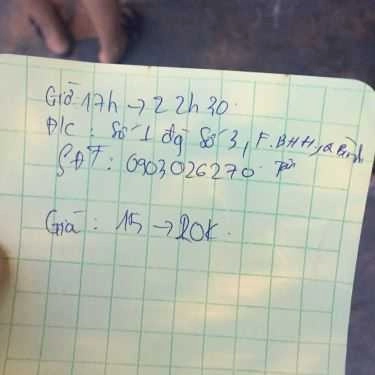 Giờ 17h → 22h30.
Đ/c : Số 1 đg Số 3, F. BHH, Q Bình
Tân
SĐT : 0903026270.
Giá : 15 → 20K.